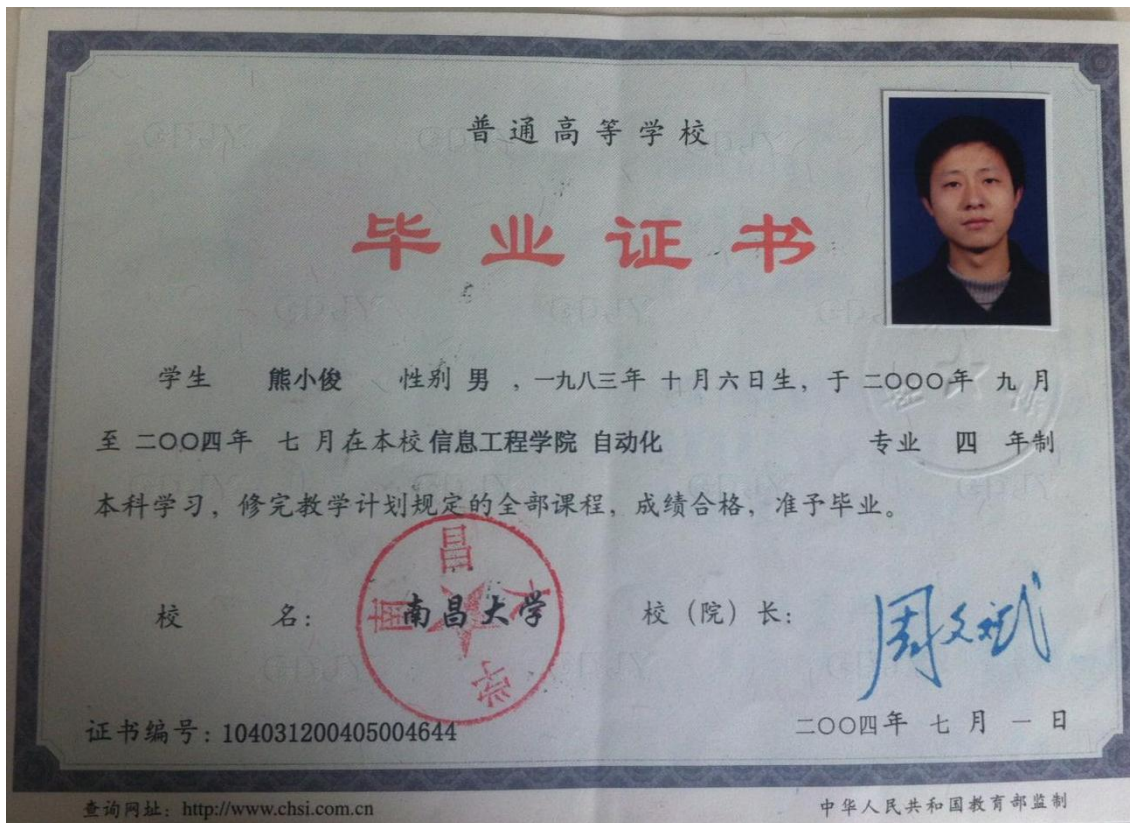 普通高等学校
毕业证书
学生 熊小俊 性别 男 ，一九八三年 十月六日生，于 二〇〇〇年 九 月
至 二〇〇四年 七 月在本校 信息工程学院 自动化 专业 四 年制
本科学习，修完教学计划规定的全部课程，成绩合格，准予毕业。
校 名： 南昌大学 校（院）长： 周文斌
南昌大学
证书编号：104031200405004644 二〇〇四年 七 月 一 日
查询网址：http://www.chsi.com.cn 中华人民共和国教育部监制